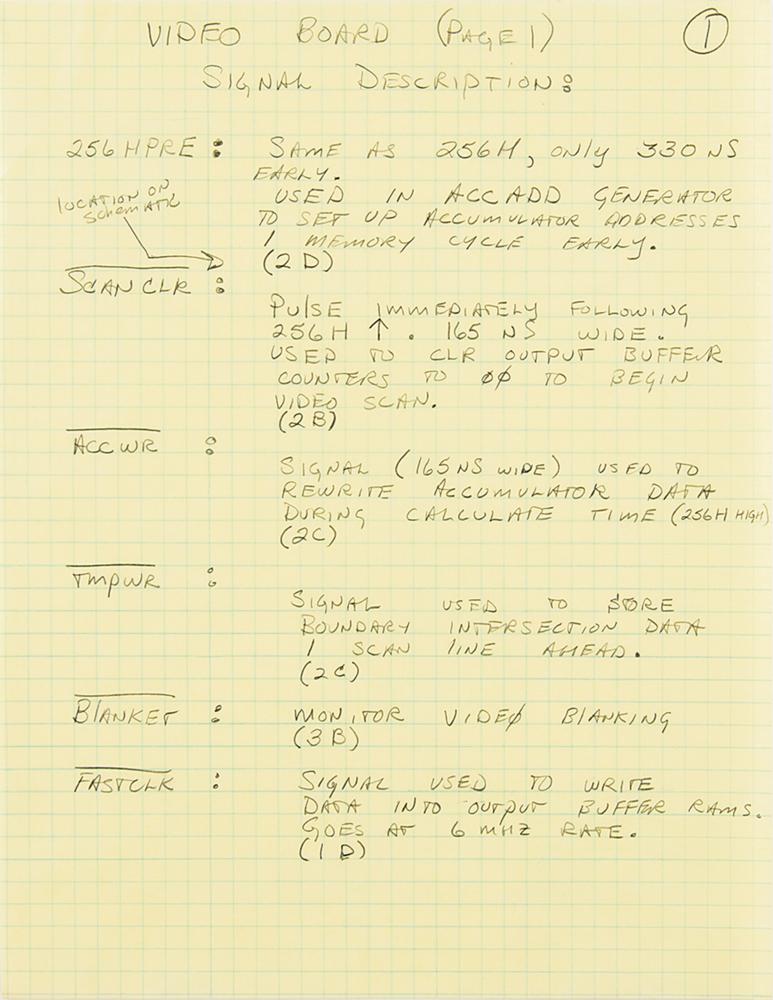 VIDEO BOARD (PAGE 1) 1
SIGNAL DESCRIPTION:
256HPRE : SAME AS 256H, ONLY 330 NS
EARLY.
USED IN ACCADD GENERATOR
TO SET UP ACCUMULATOR ADDRESSES
1 MEMORY CYCLE EARLY.
(2D)
LOCATION ON
SCHEMATIC
SCANCLR :
PULSE IMMEDIATELY FOLLOWING
256H ↑ . 165 NS WIDE.
USED TO CLR OUTPUT BUFFER
COUNTERS TO ØØ TO BEGIN
VIDEO SCAN.
(2B)
ACCWR :
SIGNAL (165NS WIDE) USED TO
REWRITE ACCUMULATOR DATA
DURING CALCULATE TIME (256H HIGH)
(2C)
TMPWR :
SIGNAL USED TO STORE
BOUNDARY INTERSECTION DATA
1 SCAN LINE AHEAD.
(2C)
BLANKET : MONITOR VIDEØ BLANKING
(3B)
FASTCLK : SIGNAL USED TO WRITE
DATA INTO OUTPUT BUFFER RAMS.
GOES AT 6 MHZ RATE.
(1D)